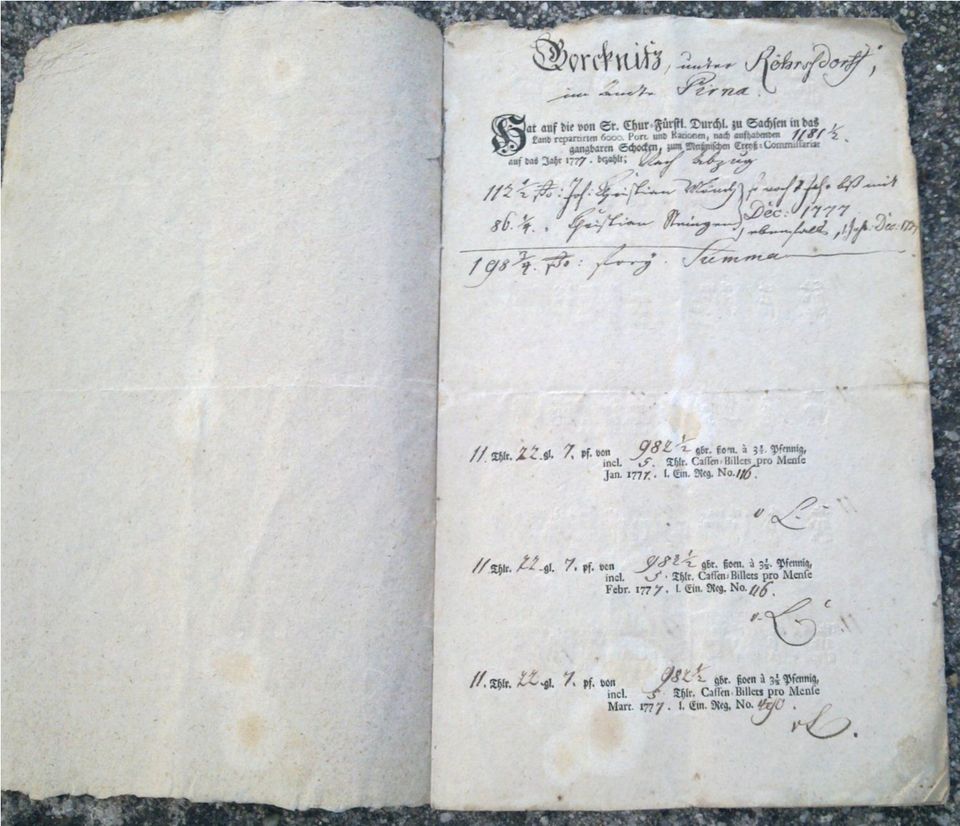 Borcknitz, unter Röhrsdorff,
im Amte Pirna.
Hat auf die von Sr. Chur-Fürstl. Durchl. zu Sachsen in das
Land repartirten 6000. Port. und Rationen, nach aufhabenden 1181 1/2.
gangbaren Schocken, zum Meißnischen Creyß-Commissariat
auf das Jahr 1777. bezahlt; Nach Abzug
112 1/2 ßo: Joh: Christian Mönch
Dec: 1777
86. 1/4. Christian
ebenfalls, Dec: 1777
198 3/4. ßo: Summa
11. Thlr. 22. gl. 7. pf. von 982 1/2 gbr. ßoen. à 3 1/2. Pfennig,
incl. 5. Thlr. Cassen-Billets pro Mense
Jan. 1777. l. Ein. Reg. No. 116.
v L.
11 Thlr. 22. gl. 7. pf. von 982 1/2 gbr. ßoen. à 3 1/2. Pfennig,
incl. 5. Thlr. Cassen-Billets pro Mense
Febr. 1777. l. Ein. Reg. No. 116.
v. L.
11. Thlr. 22. gl. 7. pf. von 982 1/2 gbr. ßoen à 3 1/2 Pfennig,
incl. 5 Thlr. Cassen-Billets pro Mense
Mart. 1777. l. Ein. Reg. No.
v L.